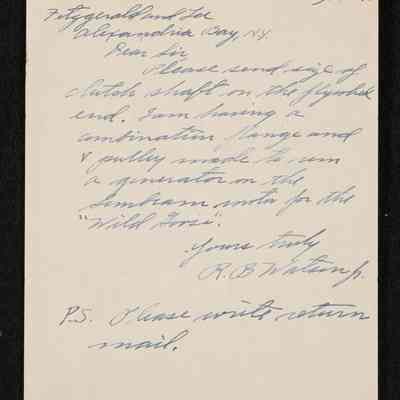 Fitzgerald and Lee
Alexandria Bay, N.Y.
Dear Sir
Please send size of
clutch shaft on the flywheel
end. I am having a
combination flange and
V pulley made to run
a generator on the
motor for the
"Wild Goose".
Yours truly
R. B Watson Jr.
P.S. Please write return
mail.